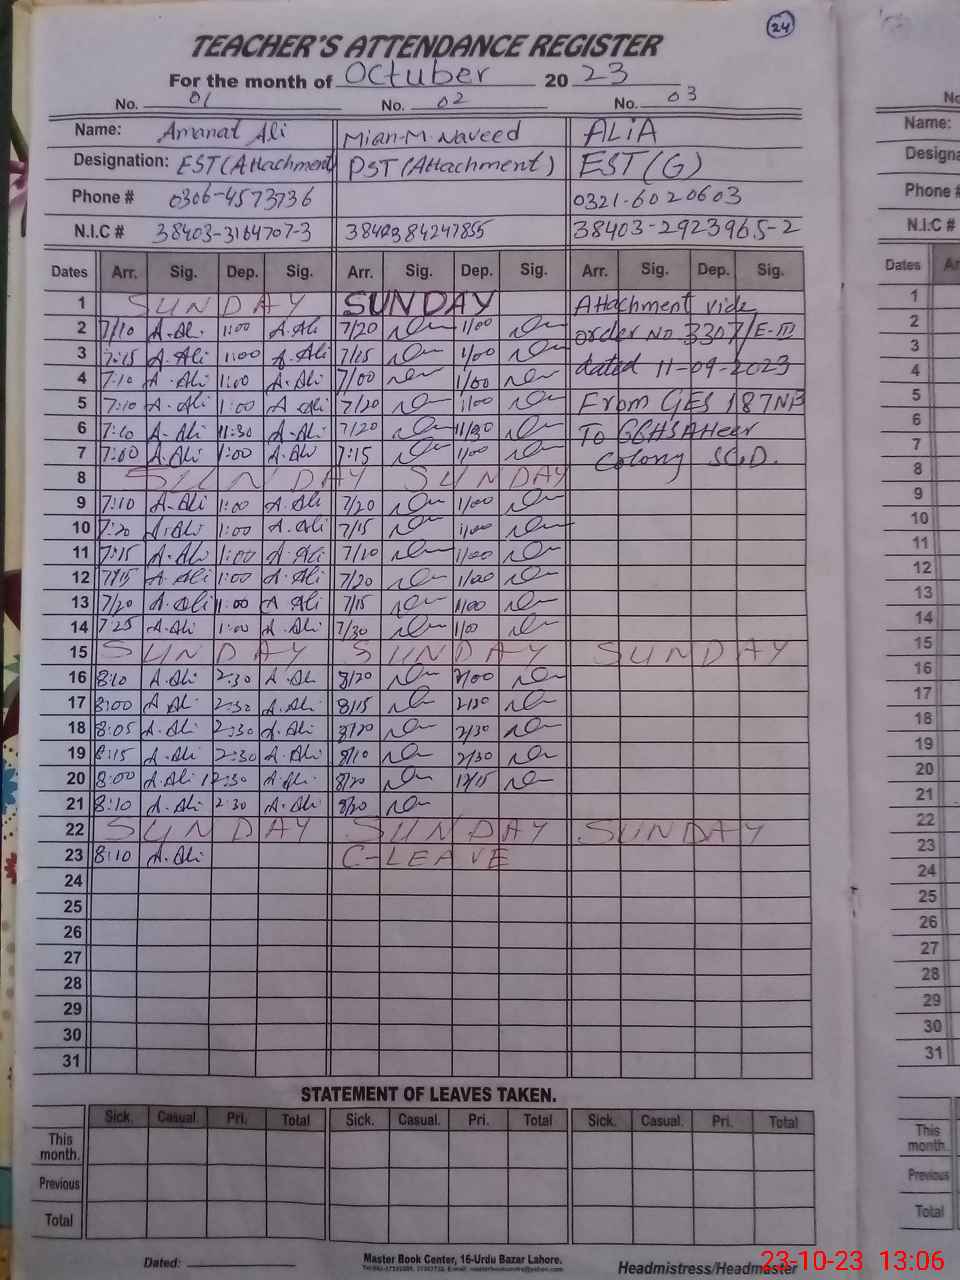 24
TEACHER'S ATTENDANCE REGISTER
For the month of Octuber 2023
No. 01 No. 02 No. 03
Name: Amanat Ali Mian-M-Naveed ALiA
Designation: EST (Attachment) PST (Attachment) EST (G)
Phone # 0306-4573736 0321-6020603
N.I.C # 38403-3164707-3 38403-2923965-2
Dates Arr. Sig. Dep. Sig. Arr. Sig. Dep. Sig. Arr. Sig. Dep. Sig.
1 SUNDAY SUNDAY Attachment vide
2 7/10 A.Ali 1:00 A.Ali 7/20 1/00 order No 3307/E-III
3 7:15 A.Ali 1:00 A.Ali 7/15 1/00
4 7:10 A.Ali 1:00 A.Ali 7/00 1/00 dated 11-09-2023
5 7:10 A.Ali 1:00 A.Ali 7/20 1/00 From GES 187NB
6 7:10 A.Ali 11:30 A.Ali 7/20 11/30 To GGHS AHeer
7 7:00 A.Ali 1:00 A.Ali 7:15 1/00 Colony SGD.
8 SUNDAY SUNDAY
9 7:10 A.Ali 1:00 A.Ali 7/20 1/00
10 7:20 A.Ali 1:00 A.Ali 7/15 1/00
11 7:15 A.Ali 1:00 A.Ali 7/10 1/00
12 7/15 A.Ali 1:00 A.Ali 7/20 1/00
13 7/20 A.Ali 1:00 A Ali 7/15 1/00
14 7:25 A.Ali 1:00 A.Ali 7/30 1/00
15 SUNDAY SUNDAY SUNDAY
16 8:10 A.Ali 2:30 A.Ali 8/20 2/00
17 8:00 A Ali 2:30 A.Ali 8/15 2/30
18 8:05 A.Ali 2:30 A.Ali 8/20 2/30
19 8:15 A.Ali 2:30 A.Ali 8/10 2/30
20 8:00 A.Ali 12:30 A.Ali 8/20 12/15
21 8:10 A.Ali 2:30 A.Ali 8/20
22 SUNDAY SUNDAY SUNDAY
23 8:10 A.Ali C-LEAVE
24
25
26
27
28
29
30
31
STATEMENT OF LEAVES TAKEN.
Sick. Casual. Pri. Total Sick. Casual. Pri. Total Sick. Casual. Pri. Total
This
month.
Previous
Total
Dated:
Master Book Center, 16-Urdu Bazar Lahore.
Headmistress/Headmaster
23-10-23 13:06
Name:
Phone #
N.I.C #
Dates
1
2
3
4
5
6
7
8
9
10
11
12
13
14
15
16
17
18
19
20
21
22
23
24
25
26
27
28
29
30
31
This
month.
Previous
Total